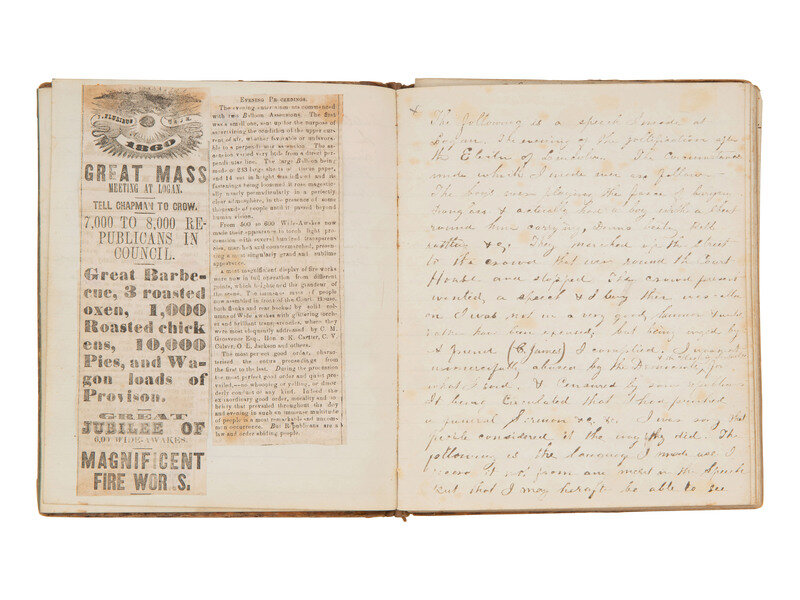 E. PLURIBUS UNUM
1860
GREAT MASS
MEETING AT LOGAN.
TELL CHAPMAN TO CROW.
7,000 TO 8,000 RE-
PUBLICANS IN
COUNCIL.
Great Barbe-
cue, 3 roasted
oxen, 1,000
Roasted chick
ens, 10,000
Pies, and Wa-
gon loads of
Provison.
GREAT
JUBILEE OF
600 WIDE-AWAKES.
MAGNIFICENT
FIRE WORKS.
EVENING PROCEEDINGS.
The evening entertainments commenced
with two Balloon Ascensions. The first
was a small one, sent up for the purpose of
ascertaining the condition of the upper cur-
rent of air, whether favorable or unfavora-
ble to a perpendicular ascension. The as-
cension varied very little from a direct per-
pendicular line. The large Balloon being
made of 233 large sheets of tissue paper,
and 14 feet in height was inflated and its
fastenings being loosened it rose magestic-
ally, nearly perpendicularly in a perfectly
clear atmosphere, in the presence of some
thousands of people until it passed beyond
human vision.
From 500 to 600 Wide-Awakes now
made their appearance in torch light pro-
cession with several hundred transparen-
cies, marched and countermarched, presenting
a most singularly grand and sublime
appearance.
a most magnificent display of fire works
were now in full operation from different
points, which heightened the grandeur of
the scene. The immense mass of people
now assembled in front of the Court House,
both flanks and rear backed by solid col-
umns of Wide Awakes with glittering torch-
es and brilliant transparencies, where they
were most eloquently addressed by C. M.
Grosvenor Esq., Hon. D. K. Cartter, C. V.
Culver, O. L. Jackson and others.
The most perfect good order, charac-
terized the entire proceedings from
the first to the last. During the procession
the most perfect good order and quiet pre-
vailed,—no whooping or yelling, or disor-
derly conduct of any kind. Indeed the
extraordinary good order, morality and so-
briety that prevailed throughout the day
and evening in such an immense multitude
of people is a most remarkable and uncom-
mon occurrence. But Republicans are a
law and order abiding people.
The following is a speech I made at
Logan. The evening of the jollification after
the Election of Lincoln. The circumstances
under which I made were as follows.
The boys were playing the farce
Douglass & actually had a boy with a sheet
round him carrying,
& They marched up the street
to the crowd that was round the Court
House and stopped. The crowd
wanted a speech &
on I was not in a very good humor &
rather have been excused; but being urged by
A friend (C. James) I complied. I was
unmercifully abused by the Democrats for
what I said. & Censured by some
It being circulated that I had preached
a funeral Sermon &c, &c. I was sorry that
people considered it the way they did. The
following is the language I made use I
record it not from any merit in the Speech
but that I may be able to see